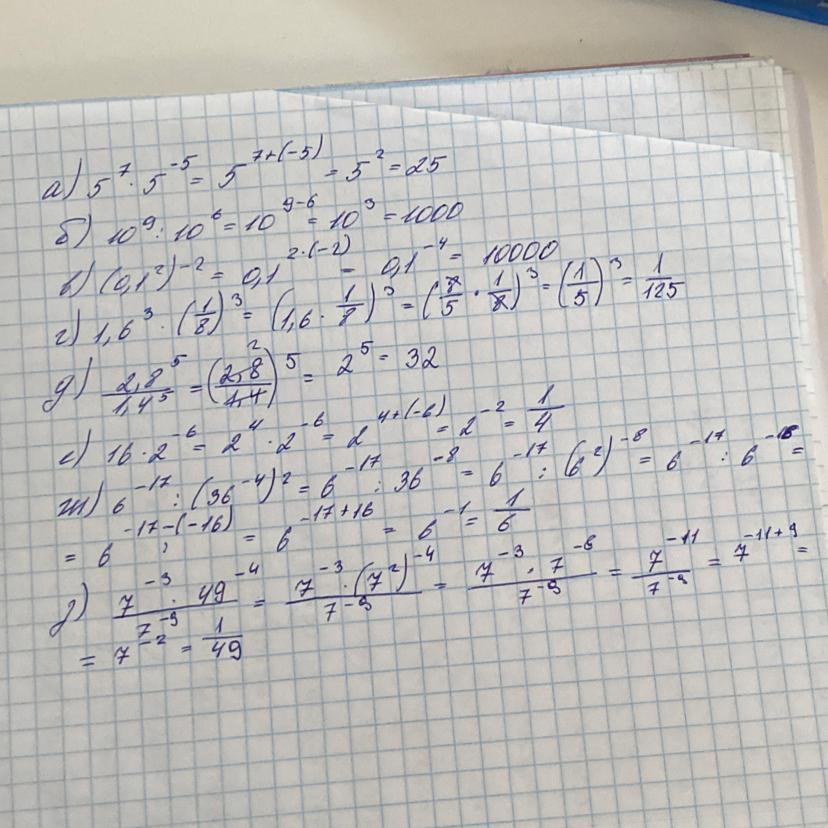 а) 5⁷ · 5⁻⁵ = 5⁷⁺⁽⁻⁵⁾ = 5² = 25
б) 10⁹ : 10⁶ = 10⁹⁻⁶ = 10³ = 1000
в) (0,1²)⁻² = 0,1^(2·(-2)) = 0,1⁻⁴ = 10000
г) 1,6³ · (1/8)³ = (1,6 · 1/8)³ = (8/5 · 1/8)³ = (1/5)³ = 1/125
д) 2,8⁵/1,4⁵ = (2,8/1,4)⁵ = 2⁵ = 32
е) 16 · 2⁻⁶ = 2⁴ · 2⁻⁶ = 2⁴⁺⁽⁻⁶⁾ = 2⁻² = 1/4
ж) 6⁻¹⁷ : (36⁻⁴)² = 6⁻¹⁷ : 36⁻⁸ = 6⁻¹⁷ : (6²)⁻⁸ = 6⁻¹⁷ : 6⁻¹⁶ =
= 6⁻¹⁷⁻⁽⁻¹⁶⁾ = 6⁻¹⁷⁺¹⁶ = 6⁻¹ = 1/6
з) 7⁻³ · 49⁻⁴/7⁻⁹ = 7⁻³ · (7²)⁻⁴/7⁻⁹ = 7⁻³ · 7⁻⁸/7⁻⁹ = 7⁻¹¹/7⁻⁹ = 7⁻¹¹⁺⁹ =
= 7⁻² = 1/49